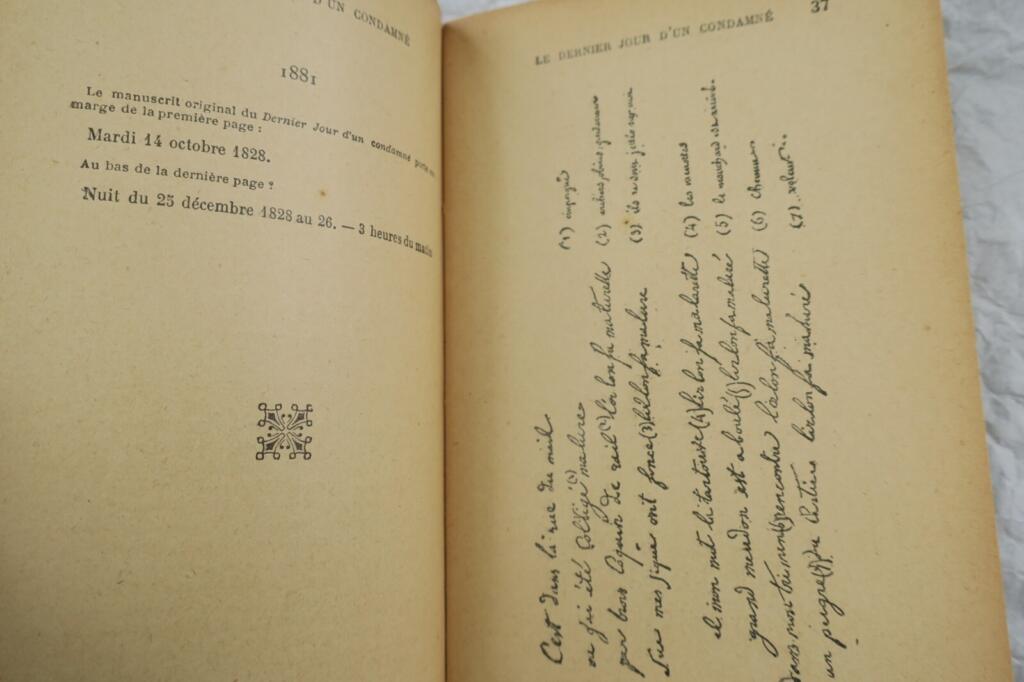 D'UN CONDAMNÉ
1881
Le manuscrit original du Dernier Jour d'un condamné porte en
marge de la première page :
Mardi 14 octobre 1828.
Au bas de la dernière page ?
Nuit du 25 décembre 1828 au 26. — 3 heures du matin
LE DERNIER JOUR D'UN CONDAMNÉ
37
C'est dans la rue du mail
où j'ai été colligé (1) malure
par trois coquins de railles (2) lirlonfa malurette
Sur mes sique' ont foncé (3) lirlonfa malure
il m'ont mit la tartouve (4) lirlonfa malurette
grand meudon est aboulé (5) lirlonfa maluré
dans mon trimin (6) rencontre lirlonfa malurette
un peigre (7) du cartier lirlonfa maluré
(1) empoigné
(2)
(3) ils se sont jetés sur moi
(4) les menottes
(5) le mouchard est arrivé.
(6) chemin
(7) voleur